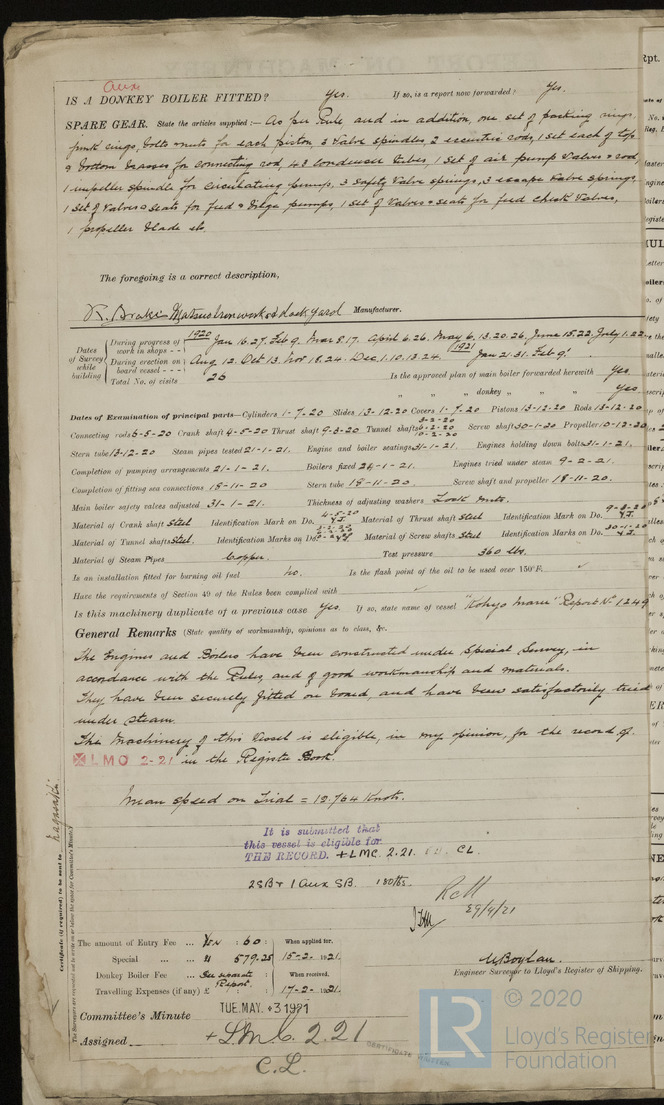 Aux
IS A DONKEY BOILER FITTED? Yes. If so, is a report now forwarded? Yes.
SPARE GEAR. State the articles supplied:— As per Rule and in addition, one set of packing rings
junk rings, bolts & nuts for each piston, 3 Valve spindles, 2 eccentric rods, 1 set each of top
& bottom brasses for connecting rod, 43 Condenser tubes, 1 Set of air pump Valves & rod,
1 impeller spindle for circulating pump, 3 Safety Valve springs, 3 escape Valve springs,
1 Set of Valves & seats for feed & Bilge pumps, 1 set of Valves & seats for feed check Valves,
1 propeller blade etc
The foregoing is a correct description,
Manufacturer.
Dates of Survey while building
During progress of work in shops - - 1920 Jan 16.27. Feb 9. Mar 8.17. April 6.26. May 6.13.20.26. June 15.22. July 1.22.
During erection on board vessel - - - Aug 12. Oct 13. Nov 18.24. Dec 1.10.13.24. 1921 Jan 21.31. Feb 9.
Total No. of visits 26
Is the approved plan of main boiler forwarded herewith Yes
" " " donkey " " " Yes
Dates of Examination of principal parts—Cylinders 1-7-20 Slides 13-12-20 Covers 1-7-20 Pistons 13-12-20 Rods 13-12-20
Connecting rods 6-5-20 Crank shaft 4-5-20 Thrust shaft 9-3-20 Tunnel shafts Screw shaft 30-1-20 Propeller 10-12-20
Stern tube 13-12-20 Steam pipes tested 21-1-21. Engine and boiler seatings 31-1-21. Engines holding down bolts 31-1-21.
Completion of pumping arrangements 21-1-21. Boilers fixed 24-1-21. Engines tried under steam 9-2-21.
Completion of fitting sea connections 18-11-20 Stern tube 18-11-20 Screw shaft and propeller 18-11-20.
Main boiler safety valves adjusted 31-1-21. Thickness of adjusting washers Lock nuts.
Material of Crank shaft Steel Identification Mark on Do. 4-5-20 Y.J. Material of Thrust shaft Steel Identification Mark on Do.
Material of Tunnel shafts Steel. Identification Marks on Do. Material of Screw shafts Steel Identification Marks on Do. 30-1-20
Material of Steam Pipes Copper. Test pressure 360 lbs.
Is an installation fitted for burning oil fuel No. Is the flash point of the oil to be used over 150°F. ✓
Have the requirements of Section 49 of the Rules been complied with ✓
Is this machinery duplicate of a previous case Yes. If so, state name of vessel "Kohyo Maru" Report No 1249
General Remarks (State quality of workmanship, opinions as to class, &c.
The Engines and Boilers have been constructed under Special Survey, in
accordance with the Rules, and of good workmanship and materials.
They have been securely fitted on board, and have been satisfactorily tried
under steam.
The Machinery of this Vessel is eligible, in my opinion, for the record of
✠LMC 2-21 in the Register Book.
Mean speed on Trial = 12.764 Knots.
It is submitted that
this vessel is eligible for
THE RECORD. +LMC. 2.21. CL.
2SB & 1 Aux SB. 180 lbs.
29/4/21
The amount of Entry Fee ... Yen : 60 : When applied for,
Special ... " 579.25 15-2-1921.
Donkey Boiler Fee ... See separate Report. When received,
Travelling Expenses (if any) £ : : 17-2-1921.
W Boylan.
Engineer Surveyor to Lloyd's Register of Shipping.
Committee's Minute TUE. MAY. 3 1921
Assigned + LMC. 2.21
C.L.
CERTIFICATE WRITTEN
Certificate (if required) to be sent to Nagasaki.
The Surveyors are requested not to write on or below the space for Committee's Minute.
© 2020
LR
Lloyd's Register
Foundation